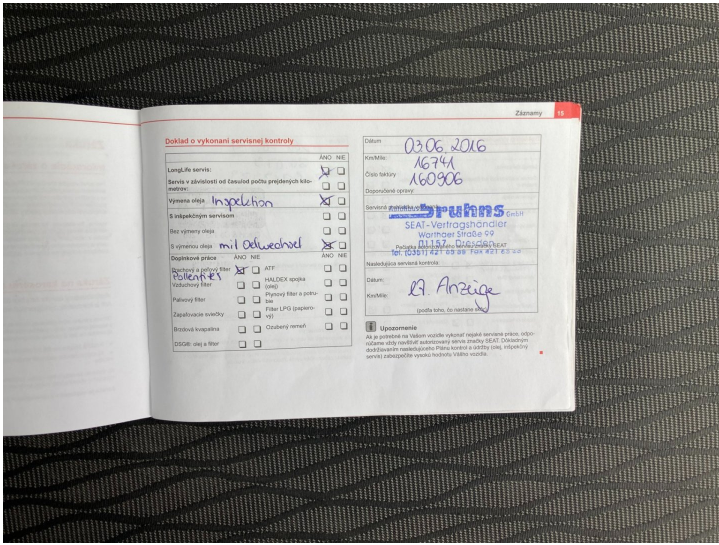 Záznamy 15
Doklad o vykonaní servisnej kontroly
ÁNO NIE
LongLife servis:
Servis v závislosti od času/od počtu prejdených kilo-
metrov:
Výmena oleja Inspektion
S inšpekčným servisom
Bez výmeny oleja
S výmenou oleja mit Oelwechsel
Doplnkové práce ÁNO NIE ÁNO NIE
Prachový a peľový filter ATF
Pollenfilter
Vzduchový filter
HALDEX spojka
(olej)
Palivový filter
Plynový filter a potru-
bie
Zapaľovacie sviečky
Filter LPG (papiero-
vý)
Brzdová kvapalina Ozubený remeň
DSG®: olej a filter
Dátum 03.06.2016
Km/Míle: 16741
Číslo faktúry 160906
Doporučené opravy:
Bruhns GmbH
SEAT-Vertragshändler
Warthaer Straße 99
01157 Dresden
Pečiatka autorizovaného servisu značky SEAT
Nasledujúca servisná kontrola:
Dátum:
Km/Míle:
Anzeige
(podľa toho, čo nastane skôr)
Upozornenie
Ak je potrebné na Vašom vozidle vykonať nejaké servisné práce, odpo-
rúčame vždy navštíviť autorizovaný servis značky SEAT. Dôkladným
dodržiavaním nasledujúceho Plánu kontrol a údržby (olej, inšpekčný
servis) zabezpečíte vysokú hodnotu Vášho vozidla.